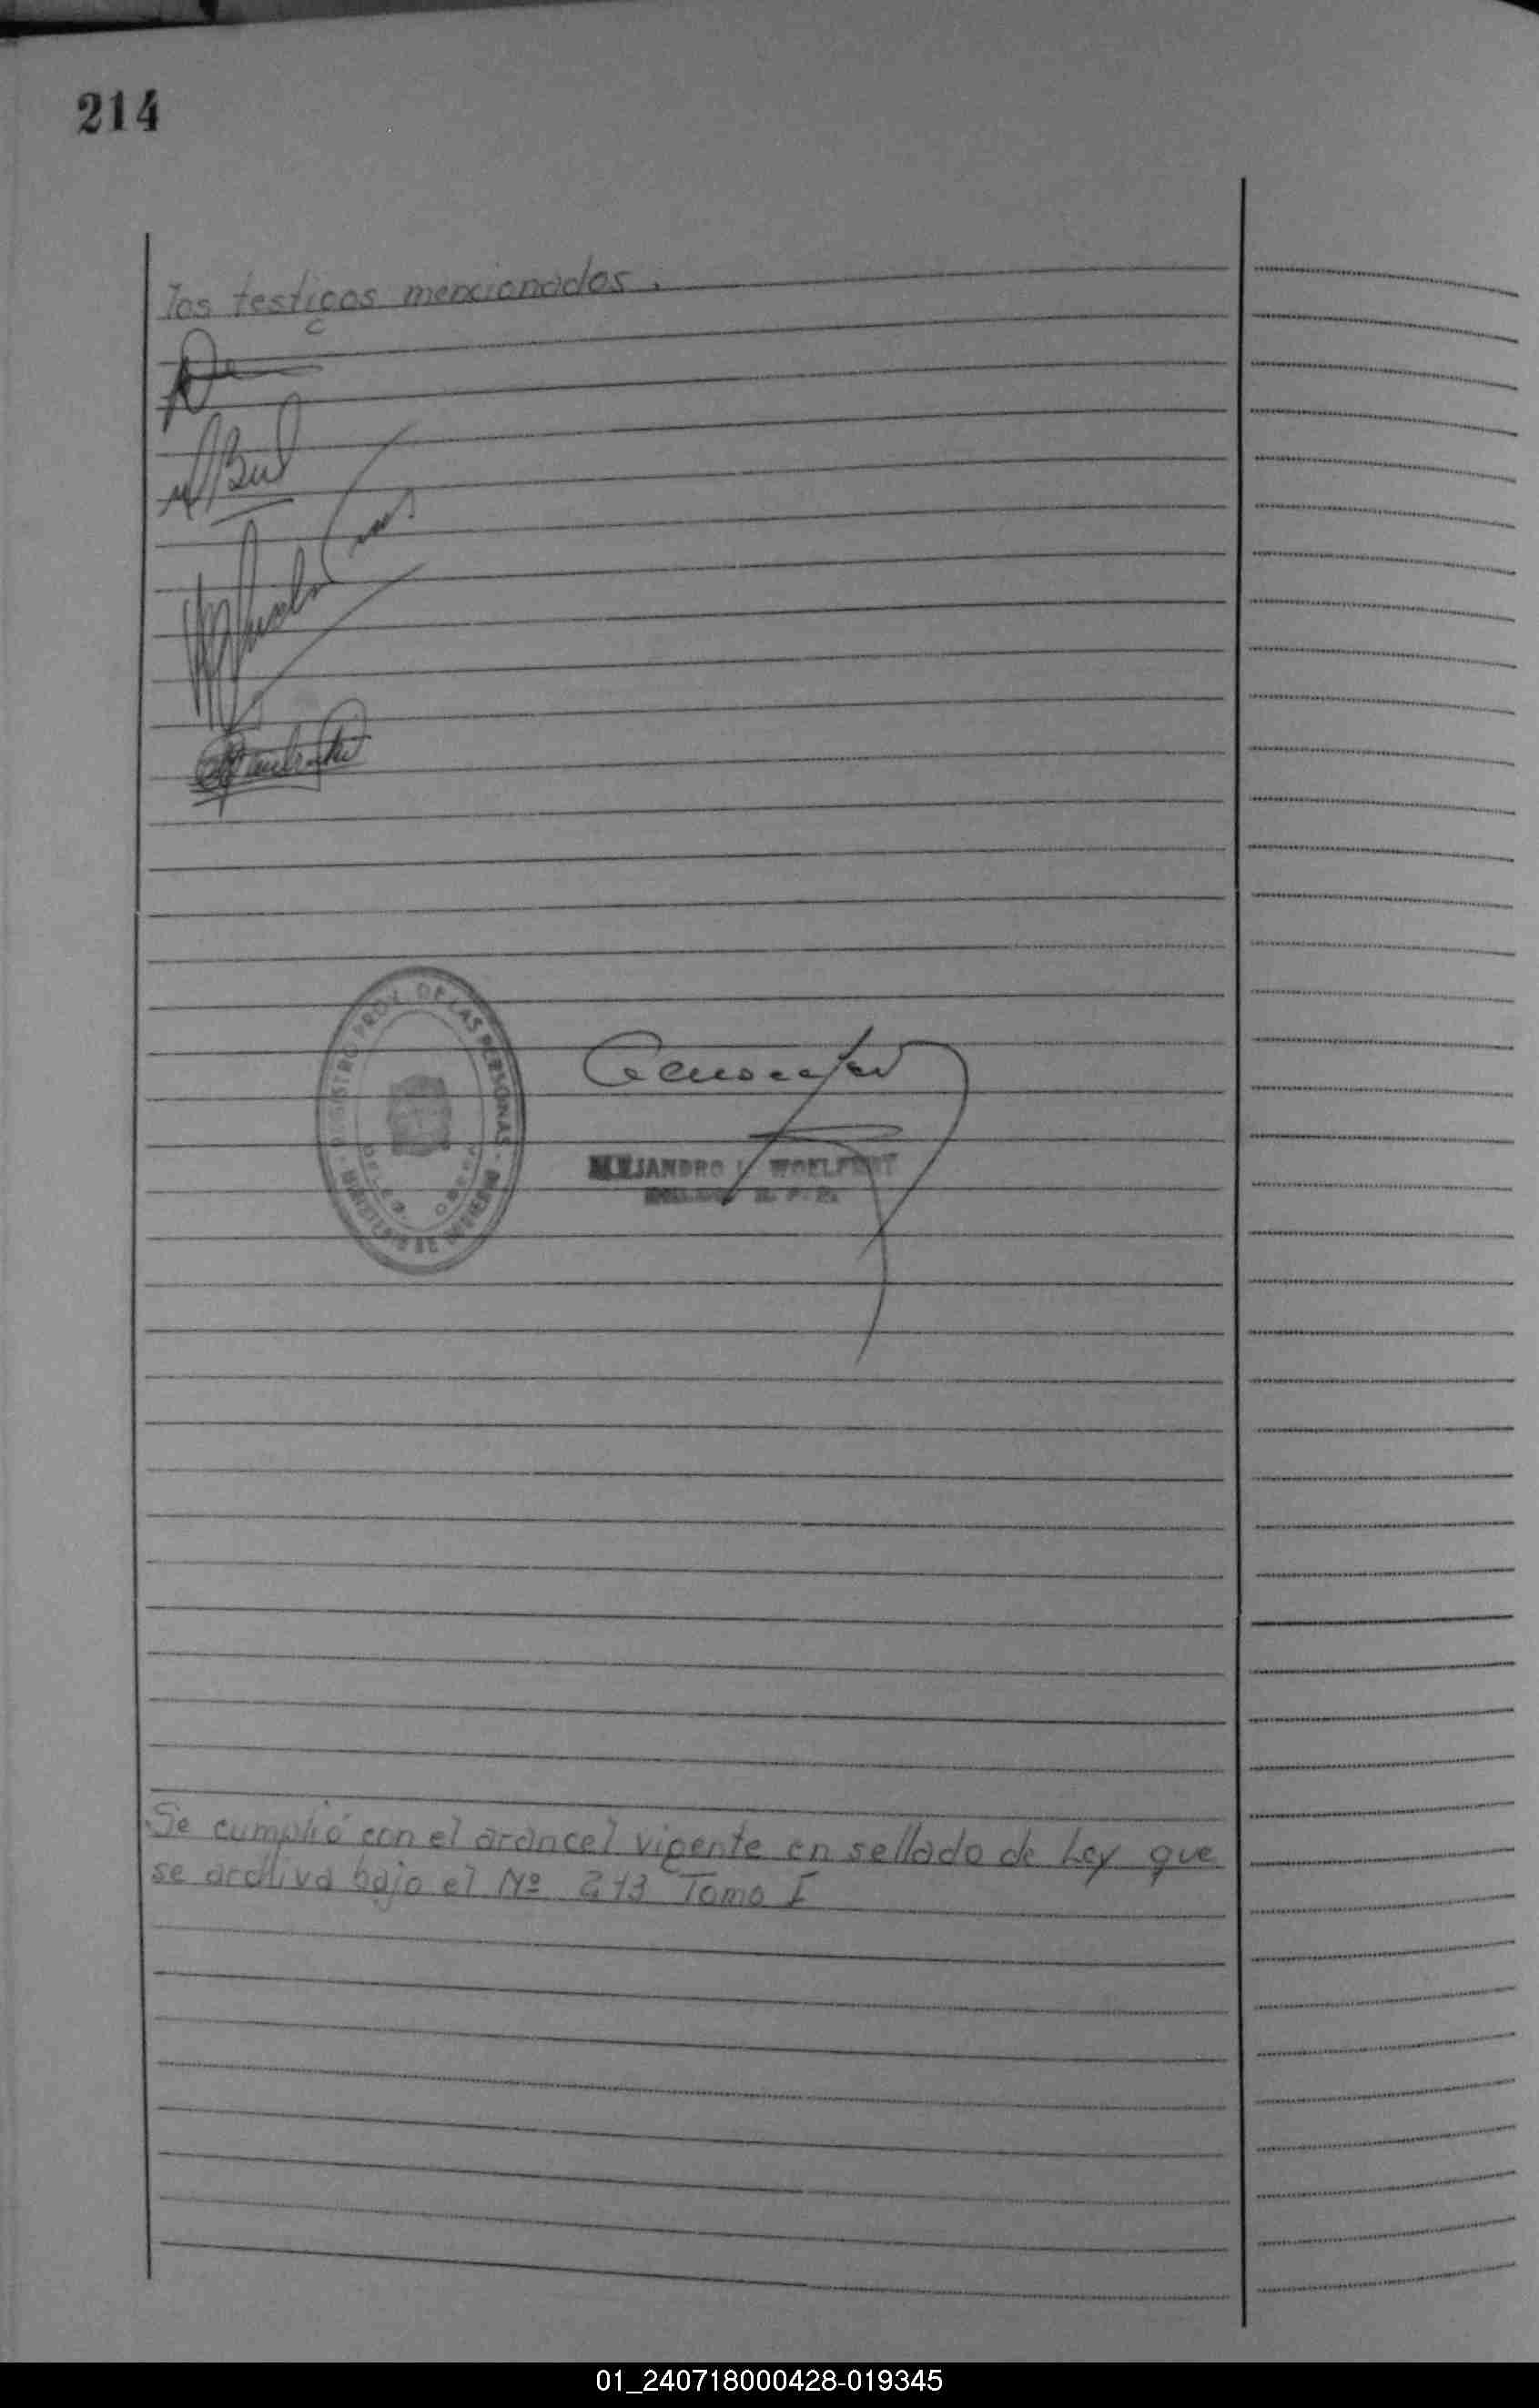 214
los testigos mencionados.
REGISTRO PROV. DE LAS PERSONAS
MINISTERIO DE GOBIERNO
ALEJANDRO WOELFERT
Se cumplió con el arancel vigente en sellado de Ley que
se archiva bajo el Nº 213 Tomo I
01_240718000428-019345